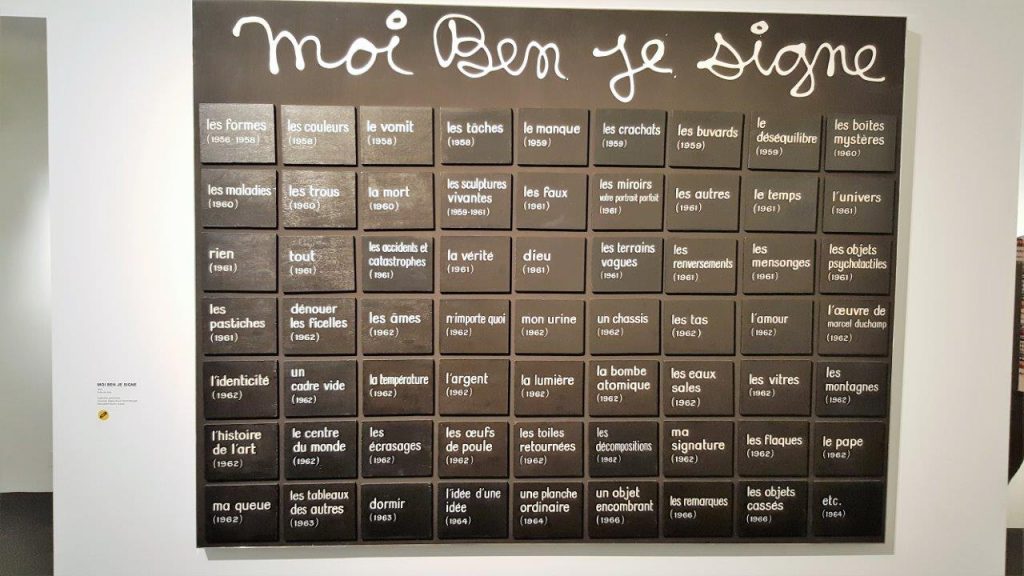 moi Ben je signe
les formes
(1956-1958)
les couleurs
(1958)
le vomit
(1958)
les tâches
(1958)
le manque
(1959)
les crachats
(1959)
les buvards
(1959)
le
déséquilibre
(1959)
les boîtes
mystères
(1960)
les maladies
(1960)
les trous
(1960)
la mort
(1960)
les sculptures
vivantes
(1959-1961)
les faux
(1961)
les miroirs
votre portrait parfait
(1961)
les autres
(1961)
le temps
(1961)
l'univers
(1961)
rien
(1961)
tout
(1961)
les accidents et
catastrophes
(1961)
la vérité
(1961)
dieu
(1961)
les terrains
vagues
(1961)
les
renversements
(1961)
les
mensonges
(1961)
les objets
psychotactiles
(1961)
les
pastiches
(1961)
dénouer
les ficelles
(1962)
les âmes
(1962)
n'importe quoi
(1962)
mon urine
(1962)
un chassis
(1962)
les tas
(1962)
l'amour
(1962)
l'œuvre de
marcel duchamp
(1962)
l'identicité
(1962)
un
cadre vide
(1962)
la température
(1962)
l'argent
(1962)
la lumière
(1962)
la bombe
atomique
(1962)
les eaux
sales
(1962)
les vitres
(1962)
les
montagnes
(1962)
l'histoire
de l'art
(1962)
le centre
du monde
(1962)
les
écrasages
(1962)
les œufs
de poule
(1962)
les toiles
retournées
(1962)
les
décompositions
(1962)
ma
signature
(1962)
les flaques
(1962)
le pape
(1962)
ma queue
(1962)
les tableaux
des autres
(1963)
dormir
(1963)
l'idée d'une
idée
(1964)
une planche
ordinaire
(1964)
un objet
encombrant
(1966)
les remarques
(1966)
les objets
cassés
(1966)
etc.
(1964)
MOI BEN JE SIGNE